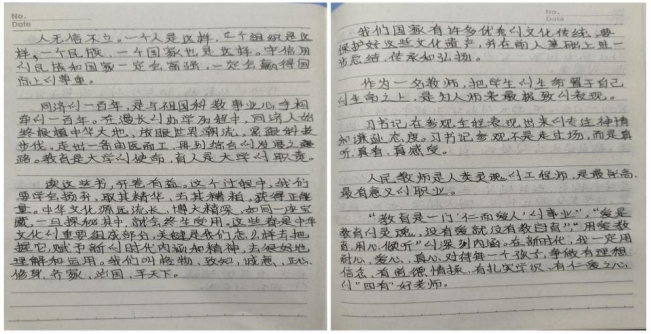 No.
Date
人无信不立。一个人是这样，一个组织是这
样，一个民族，一个国家也是这样。守信用
的民族和国家一定会富强，一定会赢得国
际上的尊重。
同济的一百年，是与祖国科教事业心手相
牵的一百年。在漫长的办学历程中，同济人始
终根植中华大地，放眼世界潮流，紧跟时者
步伐，走出一条由医而工，再到综合的发展之
路。教育是大学的使命，育人是大学的职责。
读这些书，开卷有益。这个过程中，我们
要学会扬弃，取其精华，去其糟粕，获得正能
量。中华文化源远流长，博大精深，如同一座宝
藏，一旦探秘其中，就会终生受用。这些都是中华
文化的重要组成部分，关键是我们怎么样去把
握它，赋予新的时代内涵和精神，去很好地
理解和运用。我们叫格物、致知、诚意、正心、
修身、齐家、治国、平天下。
No.
Date
我们国家有许多优秀的文化传统，要
保护好这些文化遗产，并在前人基础上进一
步总结、传承和弘扬。
作为一名教师，把学生的生命置于自己
的生命之上，是为人师表最极致的表现。
习书记在参观全程表现出来的专注神情
和谦逊态度。习书记参观不是走过场，而是真
听、真看、真感受。
人民教师是人类灵魂的工程师，是最崇高、
最有意义的职业。
“教育是一门‘仁而爱人’的事业”，“爱是
教育的灵魂，没有爱就没有教育”“用爱教
育、用心倾听”的深刻内涵。在新时代，我一定用
耐心、爱心、真心，对待每一个孩子，争做有理想
信念、有道德情操、有扎实学识、有仁爱之心
的“四有”好老师。